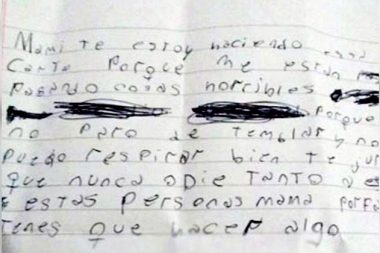 Mami te estoy haciendo esta
Carta Porque me están
Pasando cosas horribles
Porque
no Paro de temblar y no
Puedo respirar bien te jur
que nunca odie TanTo a
estas Personas mama porfa
Tenes que hacer algo